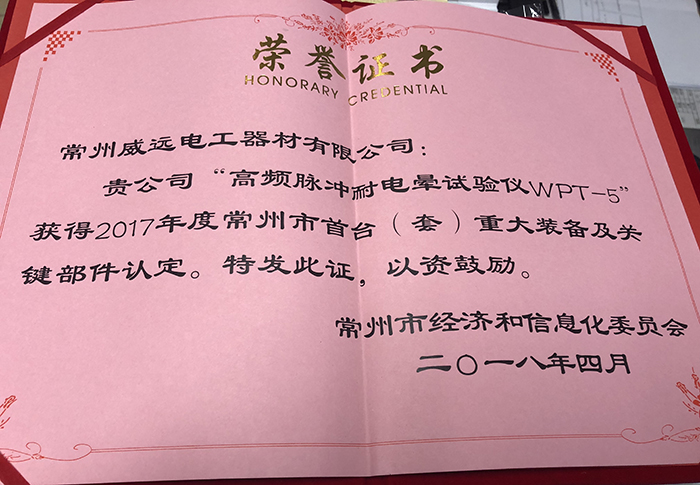 荣誉证书
HONORARY CREDENTIAL
常州威远电工器材有限公司：
贵公司“高频脉冲耐电晕试验仪WPT-5”
获得2017年度常州市首台（套）重大装备及关
键部件认定。特发此证，以资鼓励。
常州市经济和信息化委员会
二〇一八年四月